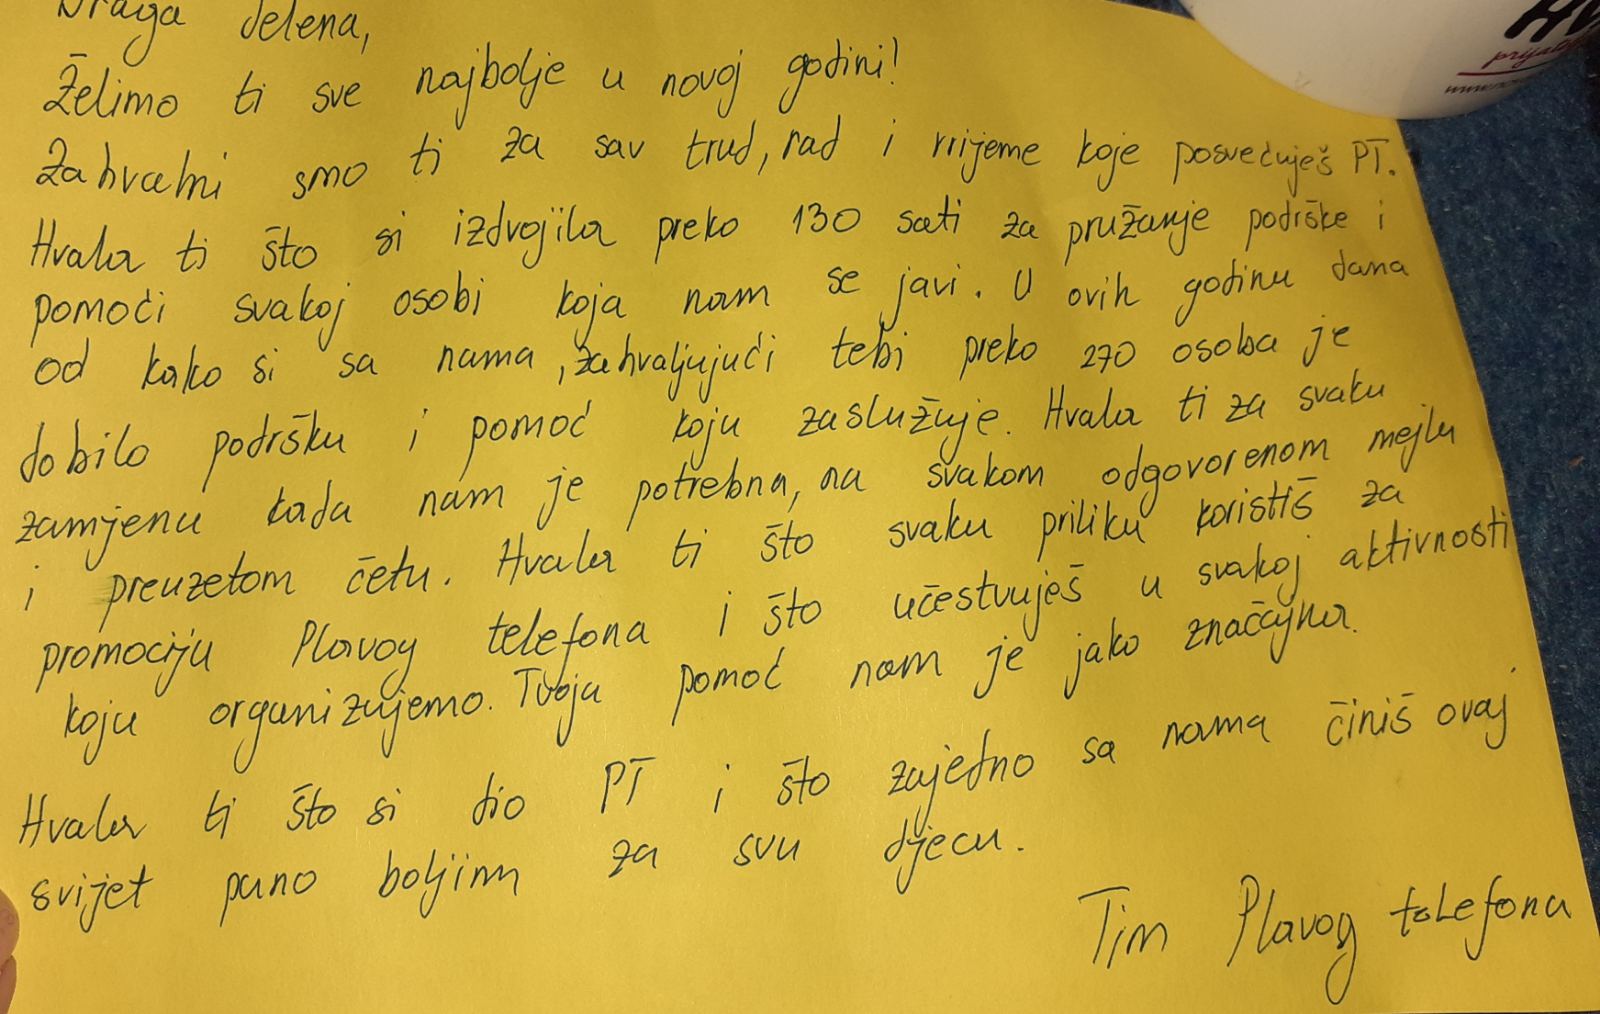 Draga Jelena,
Želimo ti sve najbolje u novoj godini!
Zahvalni smo ti za sav trud, rad i vrijeme koje posvećuješ PT.
Hvala ti što si izdvojila preko 130 sati za pružanje podrške i
pomoći svakoj osobi koja nam se javi. U ovih godinu dana
od kako si sa nama, zahvaljujući tebi preko 270 osoba je
dobilo podršku i pomoć koju zaslužuje. Hvala ti za svaku
zamjenu kada nam je potrebna, na svakom odgovorenom mejlu
i preuzetom četu. Hvala ti što svaku priliku koristiš za
promociju Plavog telefona i što učestvuješ u svakoj aktivnosti
koju organizujemo. Tvoja pomoć nam je jako značajna.
Hvala ti što si dio PT i što zajedno sa nama činiš ovaj
svijet puno boljim za svu djecu.
Tim Plavog telefona